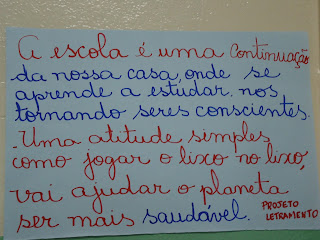 A escola é uma continuação
da nossa casa, onde se
aprende a estudar, nos
tornando seres conscientes.
Uma atitude simples,
como jogar o lixo no lixo,
vai ajudar o planeta
ser mais saudável.
PROJETO
LETRAMENTO